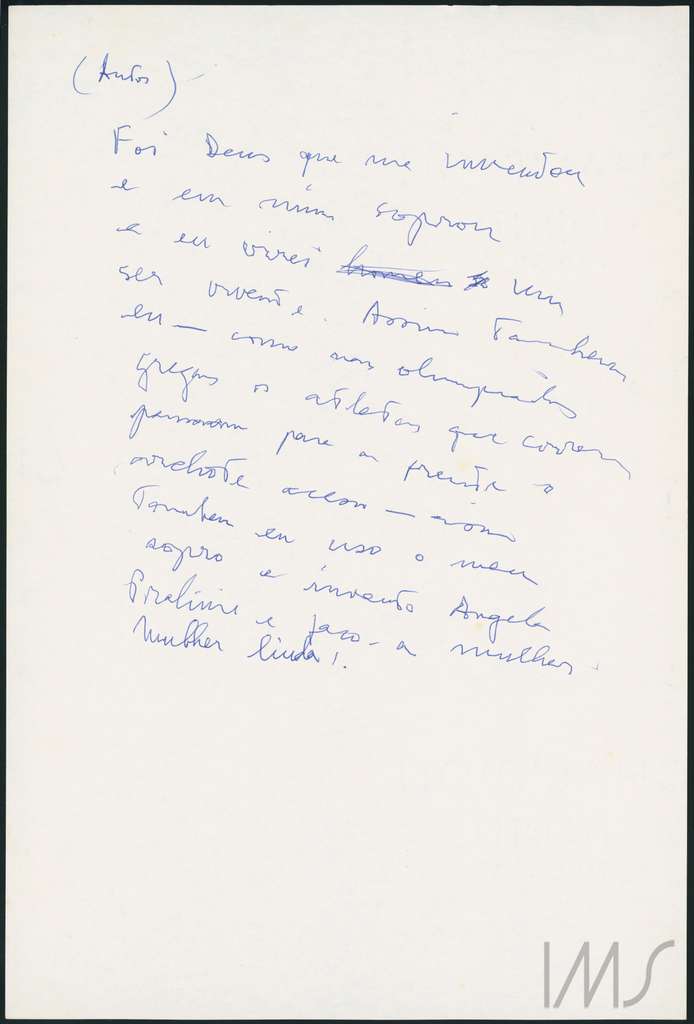 (Autor)
Foi Deus que me inventou
e em mim soprou
e eu virei homem um
ser vivente. Assim Tambem
eu — como nas olimpiadas
gregas os atletas que correm
passavam para a frente o
archote aceso — assim
Tambem eu uso o meu
sopro e invento Angela
Pralini e faço-a mulher.
Mulher linda!
IMS